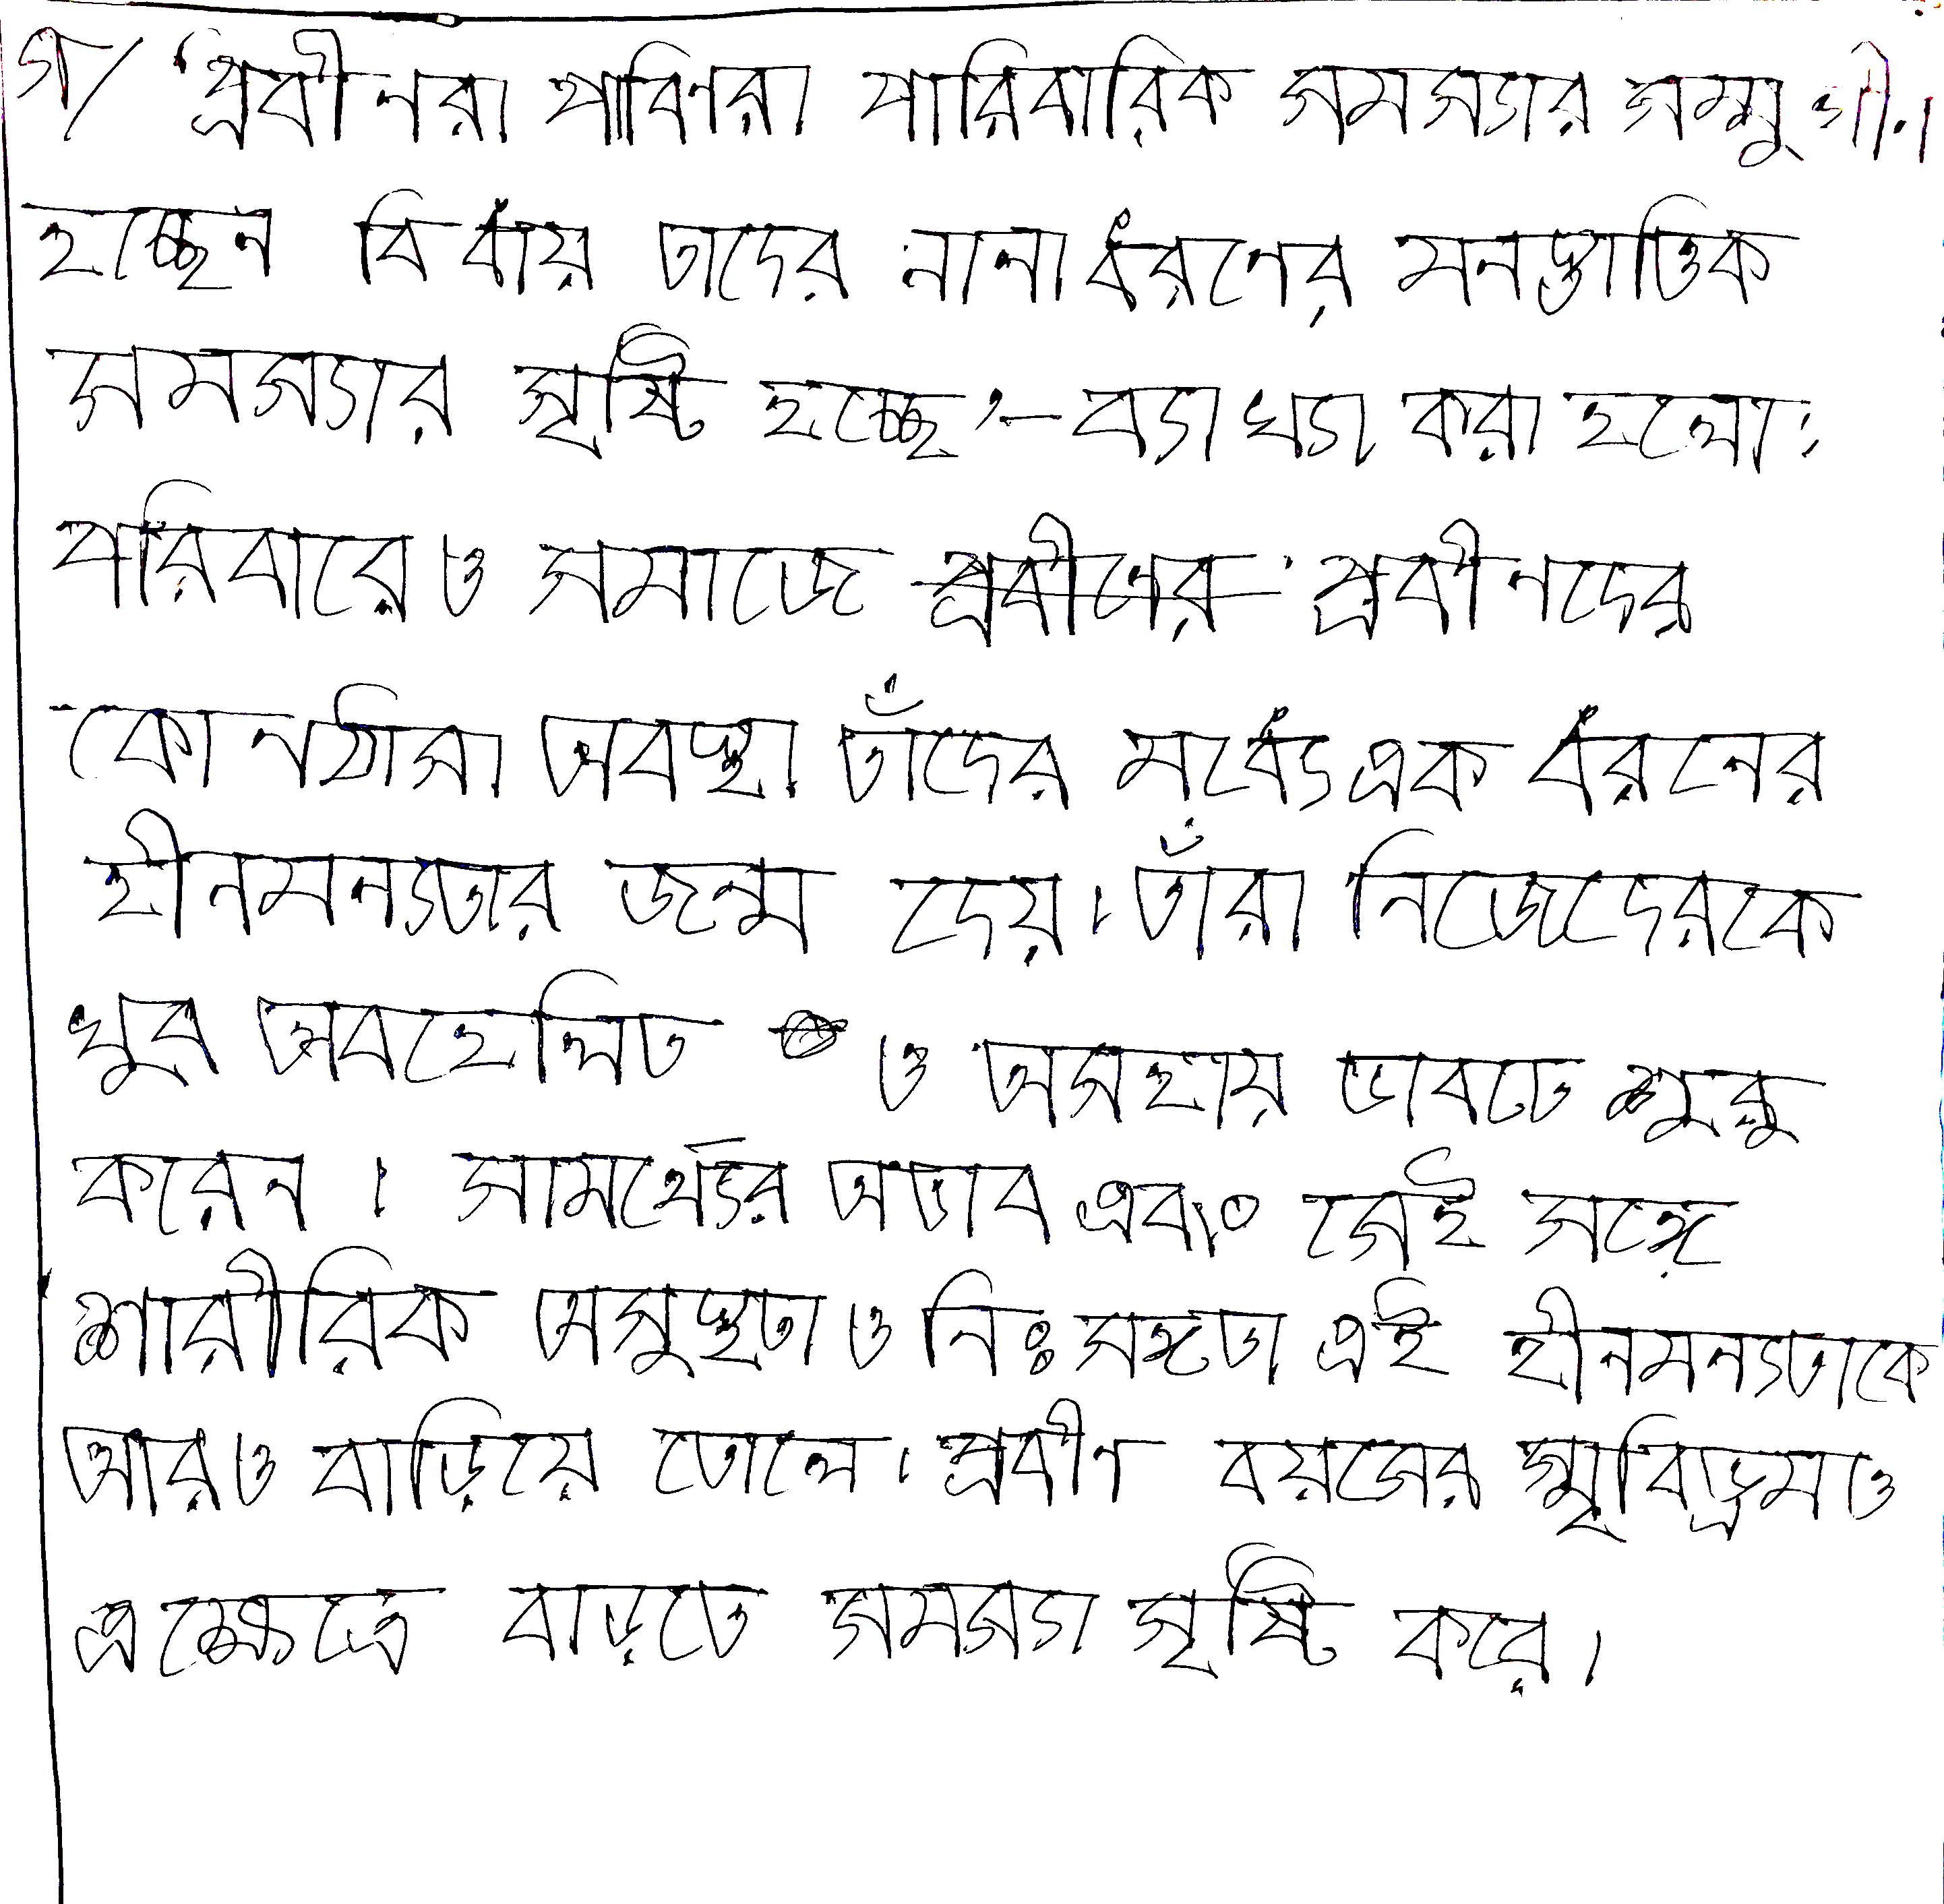 গ/ 'প্রবীনরা পাবিনরা পারিবারিক সমস্যার সম্মুখীন
হচ্ছেন বিধায় তাদের নানা ধরনের মনস্তাত্তিক
সমস্যার সৃষ্টি হচ্ছে'- ব্যাখ্যা করা হলো:
পরিবারে ও সমাজে প্রবীনের প্রবীনদের
কোনঠাসা অবস্থা তাঁদের মধ্যে এক ধরনের
হীনমন্যতার জন্ম দেয়। তাঁরা নিজেদেরকে
খুব অবহেলিত ও অসহায় ভাবতে শুরু
করেন। সামর্থ্যের অভাব এবং সেই সঙ্গে
শারীরিক অসুস্থতা ও নিঃসঙ্গতা এই হীনমন্যতাকে
আরও বাড়িয়ে তোলে। প্রবীন বয়সের স্মৃবিভ্রমও
এক্ষেত্রে বাড়তি সমস্যা সৃষ্টি করে।